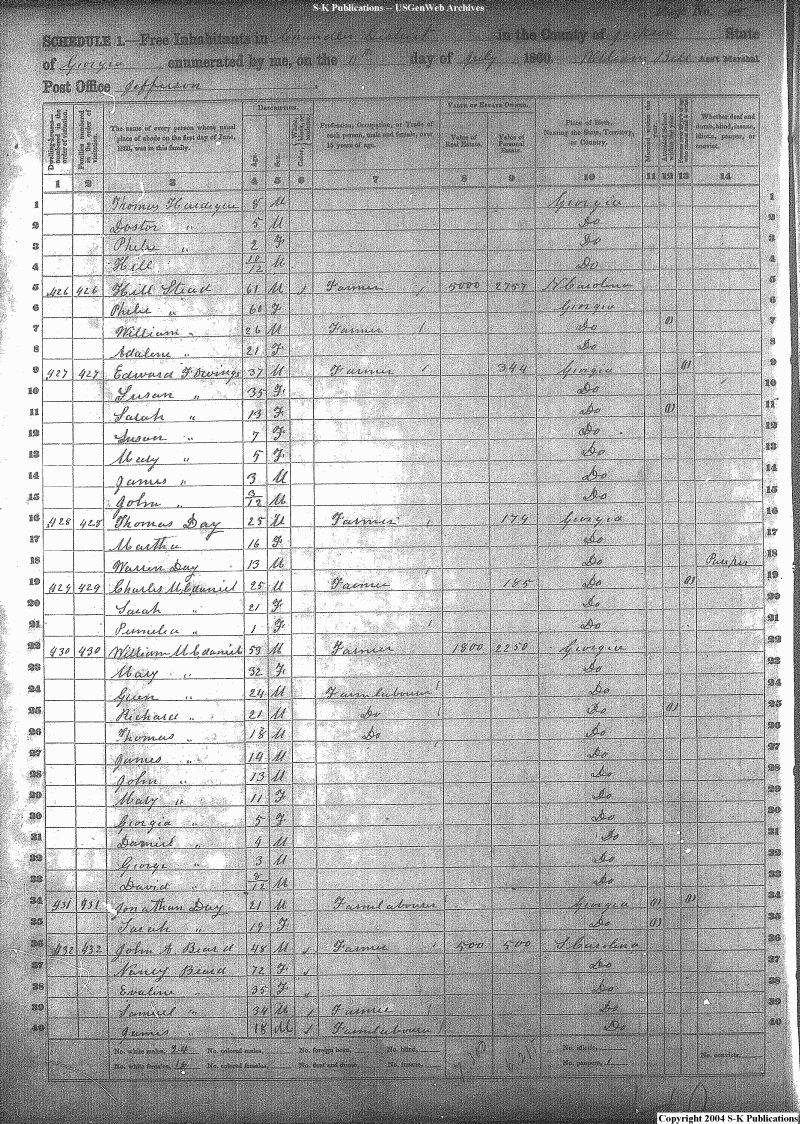 S-K Publications -- USGenWeb Archives
Page No.
SCHEDULE 1.—Free Inhabitants in District in the County of Jackson State
of Georgia enumerated by me, on the 11th day of July 1860. William Bell Ass't Marshal
Post Office Jefferson
Dwelling-houses— numbered in the order of visitation.
Families numbered in the order of visitation.
The name of every person whose usual place of abode on the first day of June, 1860, was in this family.
Description.
Age.
Sex.
Color, White, black, or mulatto.
Profession, Occupation, or Trade of each person, male and female, over 15 years of age.
Value of Estate Owned.
Value of Real Estate.
Value of Personal Estate.
Place of Birth, Naming the State, Territory, or Country.
Married within the year.
Whether deaf and dumb, blind, insane, idiotic, pauper, or convict.
1 2 3 4 5 6 7 8 9 10 11 12 13 14
1 Thomas 8 M Georgia 1
2 Doctor " 5 M Do 2
3 " 2 F Do 3
4 Hill 10/12 M Do 4
5 426 426 Hill Stead 61 M Farmer 5000 2757 N Carolina 5
6 " 60 F Georgia 6
7 William " 26 M Farmer Do 7
8 Adaline " 21 F Do 8
9 427 427 Edward F Owings 37 M Farmer 344 Georgia 9
10 Susan " 35 F Do 10
11 Sarah " 13 F Do 11
12 Susan " 7 F Do 12
13 Mary " 5 F Do 13
14 James " 3 M Do 14
15 John " 3/12 M Do 15
16 428 428 Thomas Day 25 M Farmer 179 Georgia 16
17 Martha 16 F Do 17
18 Warren Day 13 M Do Pauper 18
19 429 429 Charles McDaniel 25 M Farmer 185 Do 19
20 Sarah " 21 F Do 20
21 " 1 F Do 21
22 430 430 William McDaniel 59 M Farmer 1800 2250 Georgia 22
23 Mary " 32 F Do 23
24 Green " 24 M Farmlabourer Do 24
25 Richard " 21 M Do Do 25
26 Thomas " 18 M Do Do 26
27 James " 14 M Do 27
28 John " 13 M Do 28
29 Mary " 11 F Do 29
30 Georgia " 5 F Do 30
31 Daniel " 4 M Do 31
32 George " 3 M Do 32
33 David " 8/12 M Do 33
34 431 431 Jonathan Day 21 M Farmlabourer Georgia 34
35 Sarah " 19 F Do 35
36 432 432 John Beard 48 M Farmer 500 500 S. Carolina 36
37 Nancy Beard 72 F Do 37
38 Evaline " 35 F Do 38
39 Samuel " 34 M Farmer Do 39
40 James " 18 M Farmlabourer Do 40
No. white males, 24 No. colored males, No. foreign born, No. blind, No. idiotic, No. convicts,
No. white females, 16 No. colored females, No. deaf and dumb, No. insane, No. paupers, 1
Copyright 2004 S-K Publications